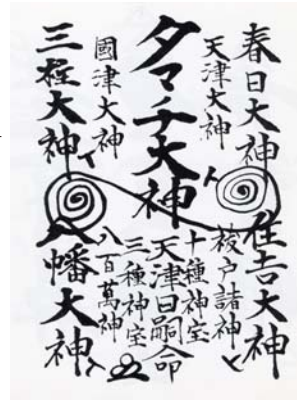 春日大神
天津大神
タマチ大神
國津大神
三柱大神
住吉大神
祓戸諸神
十種神宝
天津日嗣命
三種神宝
八百萬神
八幡大神